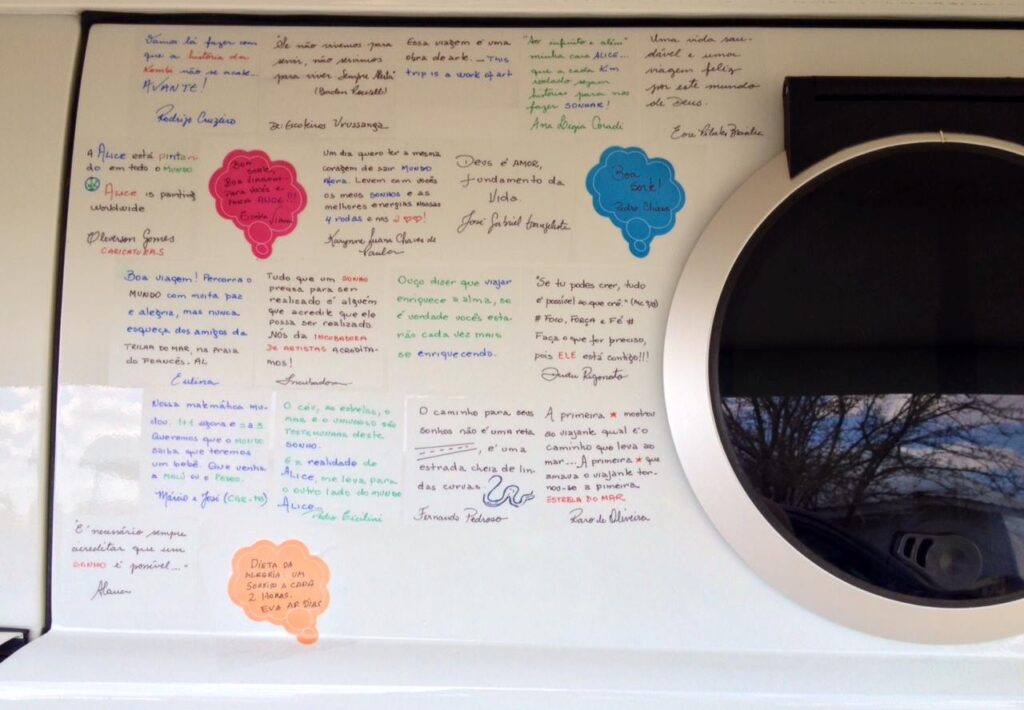 Vamos lá fazer com
que a história da
Kombi não se acabe...
AVANTE!
Rodrigo Cruzeiro
"Se não vivemos para
servir, não servimos
para viver" Sempre Alerta!
De: Escoteiros Urussanga
Essa viagem é uma
obra de arte. ... This
trip is a work of art
"Ao infinito e além"
minha cara ALICE...
que a cada Km
rodado sejam
histórias para nos
fazer SONHAR!
Ana Ligia Coradi
Uma vida sau-
dável e uma
viagem feliz
por este mundo
de Deus.
A ALICE está pintan
do em todo o MUNDO
ALICE is painting
worldwide
Gleverson Gomes
CARICATURAS
Boa
sorte,
Boa viagem
para vocês e
para ALICE!!!
Um dia quero ter a mesma
coragem de sair MUNDO
Afora. Levem com vocês
os meus SONHOS e as
melhores energias nessas
4 rodas e nos 2 ♡♡!
Karynne Luara Chaves de
Paula
Deus é AMOR,
Fundamento da
Vida.
José Gabriel Evangelista
Boa
Sorte!
Pedro Chaves
Boa viagem! Percorra o
MUNDO com muita paz
e alegria, mas nunca
esqueça dos amigos da
TRILHA DO MAR, na PRAIA
DO FRANCÊS. AL
Eulina
Tudo que um SONHO
precisa para ser
realizado é alguém
que acredite que ele
possa ser realizado.
Nós da INCUBADORA
DE ARTISTAS acredita-
mos!
Incubadora
Ouço dizer que viajar
enriquece a alma, se
é verdade vocês esta-
rão cada vez mais
se enriquecendo.
"Se tu podes crer, tudo
é possível ao que crê." (Mc 9,23)
# Foco, Força e Fé #
Faça o que for preciso,
pois ELE está contigo!!!
Dudu Rigonato
Nossa matemática mu-
dou. 1+1 agora é = a 3.
Queremos que o MUNDO
saiba que teremos
um bebê. Que venha
a MALÚ ou o PEDRO.
Márcio e José
O céu, as estrelas, o
mar e o UNIVERSO são
TESTEMUNHAS deste
SONHO.
E a realidade de
ALICE, me leva para
o outro lado do MUNDO
ALICE...
Pedro Cicilini
O caminho para seus
sonhos não é uma reta
, é uma
estrada cheia de lin
das curvas.
Fernando Pedroso
A primeira ★ mostrou
ao viajante qual é o
caminho que leva ao
mar... A primeira ★ que
amava o viajante tor-
nou-se a pimeira
ESTRELA DO MAR.
Raro de Oliveira
"É necessário sempre
acreditar que um
SONHO é possível..."
Alana
DIETA DA
ALEGRIA: UM
SORRISO A CADA
2 HORAS.
EVA AP. DIAS